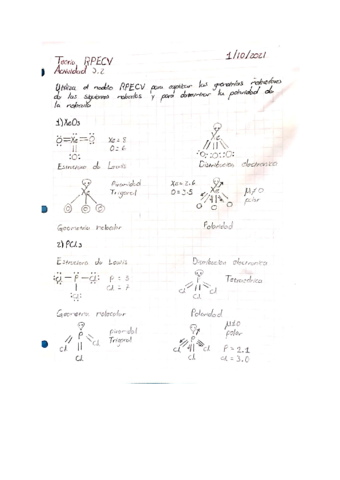 Teoría RPECV
1/10/2021
Actividad 3.2
Utiliza el modelo RPECV para explicar las geometrías moleculares
de las siguientes moléculas y para determinar la polaridad de
la molécula
1) XeO3
O=Xe=O Xe = 8
O O = 6
Xe
O O O
Estructura de Lewis
Distribución electrónica
Piramidal
Trigonal
Xe
O O O
Xe = 2.6
O = 3.5
Xe
O O O
μ≠0
polar
Geometría molecular
Polaridad
2) PCl3
Estructura de Lewis
Distribución electrónica
Cl - P - Cl P = 5
Cl Cl = 7
P
Cl Cl Cl
Tetraédrica
Geometría molecular
Polaridad
P
Cl Cl Cl
piramidal
Trigonal
P
Cl Cl Cl
μ≠0
polar
P = 2.1
Cl = 3.0